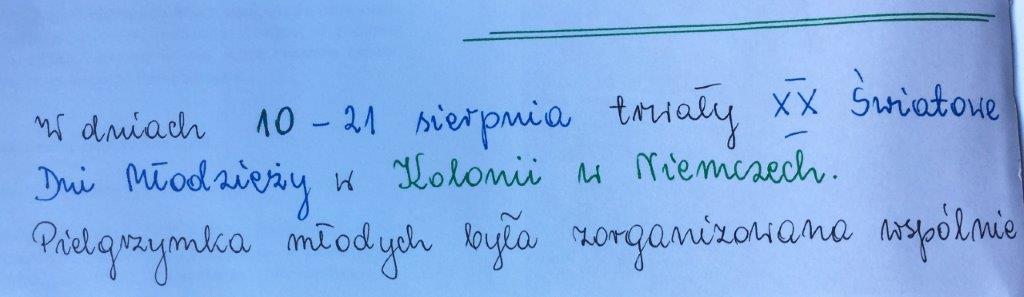 W dniach 10 - 21 sierpnia trwały XX Światowe
Dni Młodzieży w Kolonii w Niemczech.
Pielgrzymka młodych była zorganizowana wspólnie